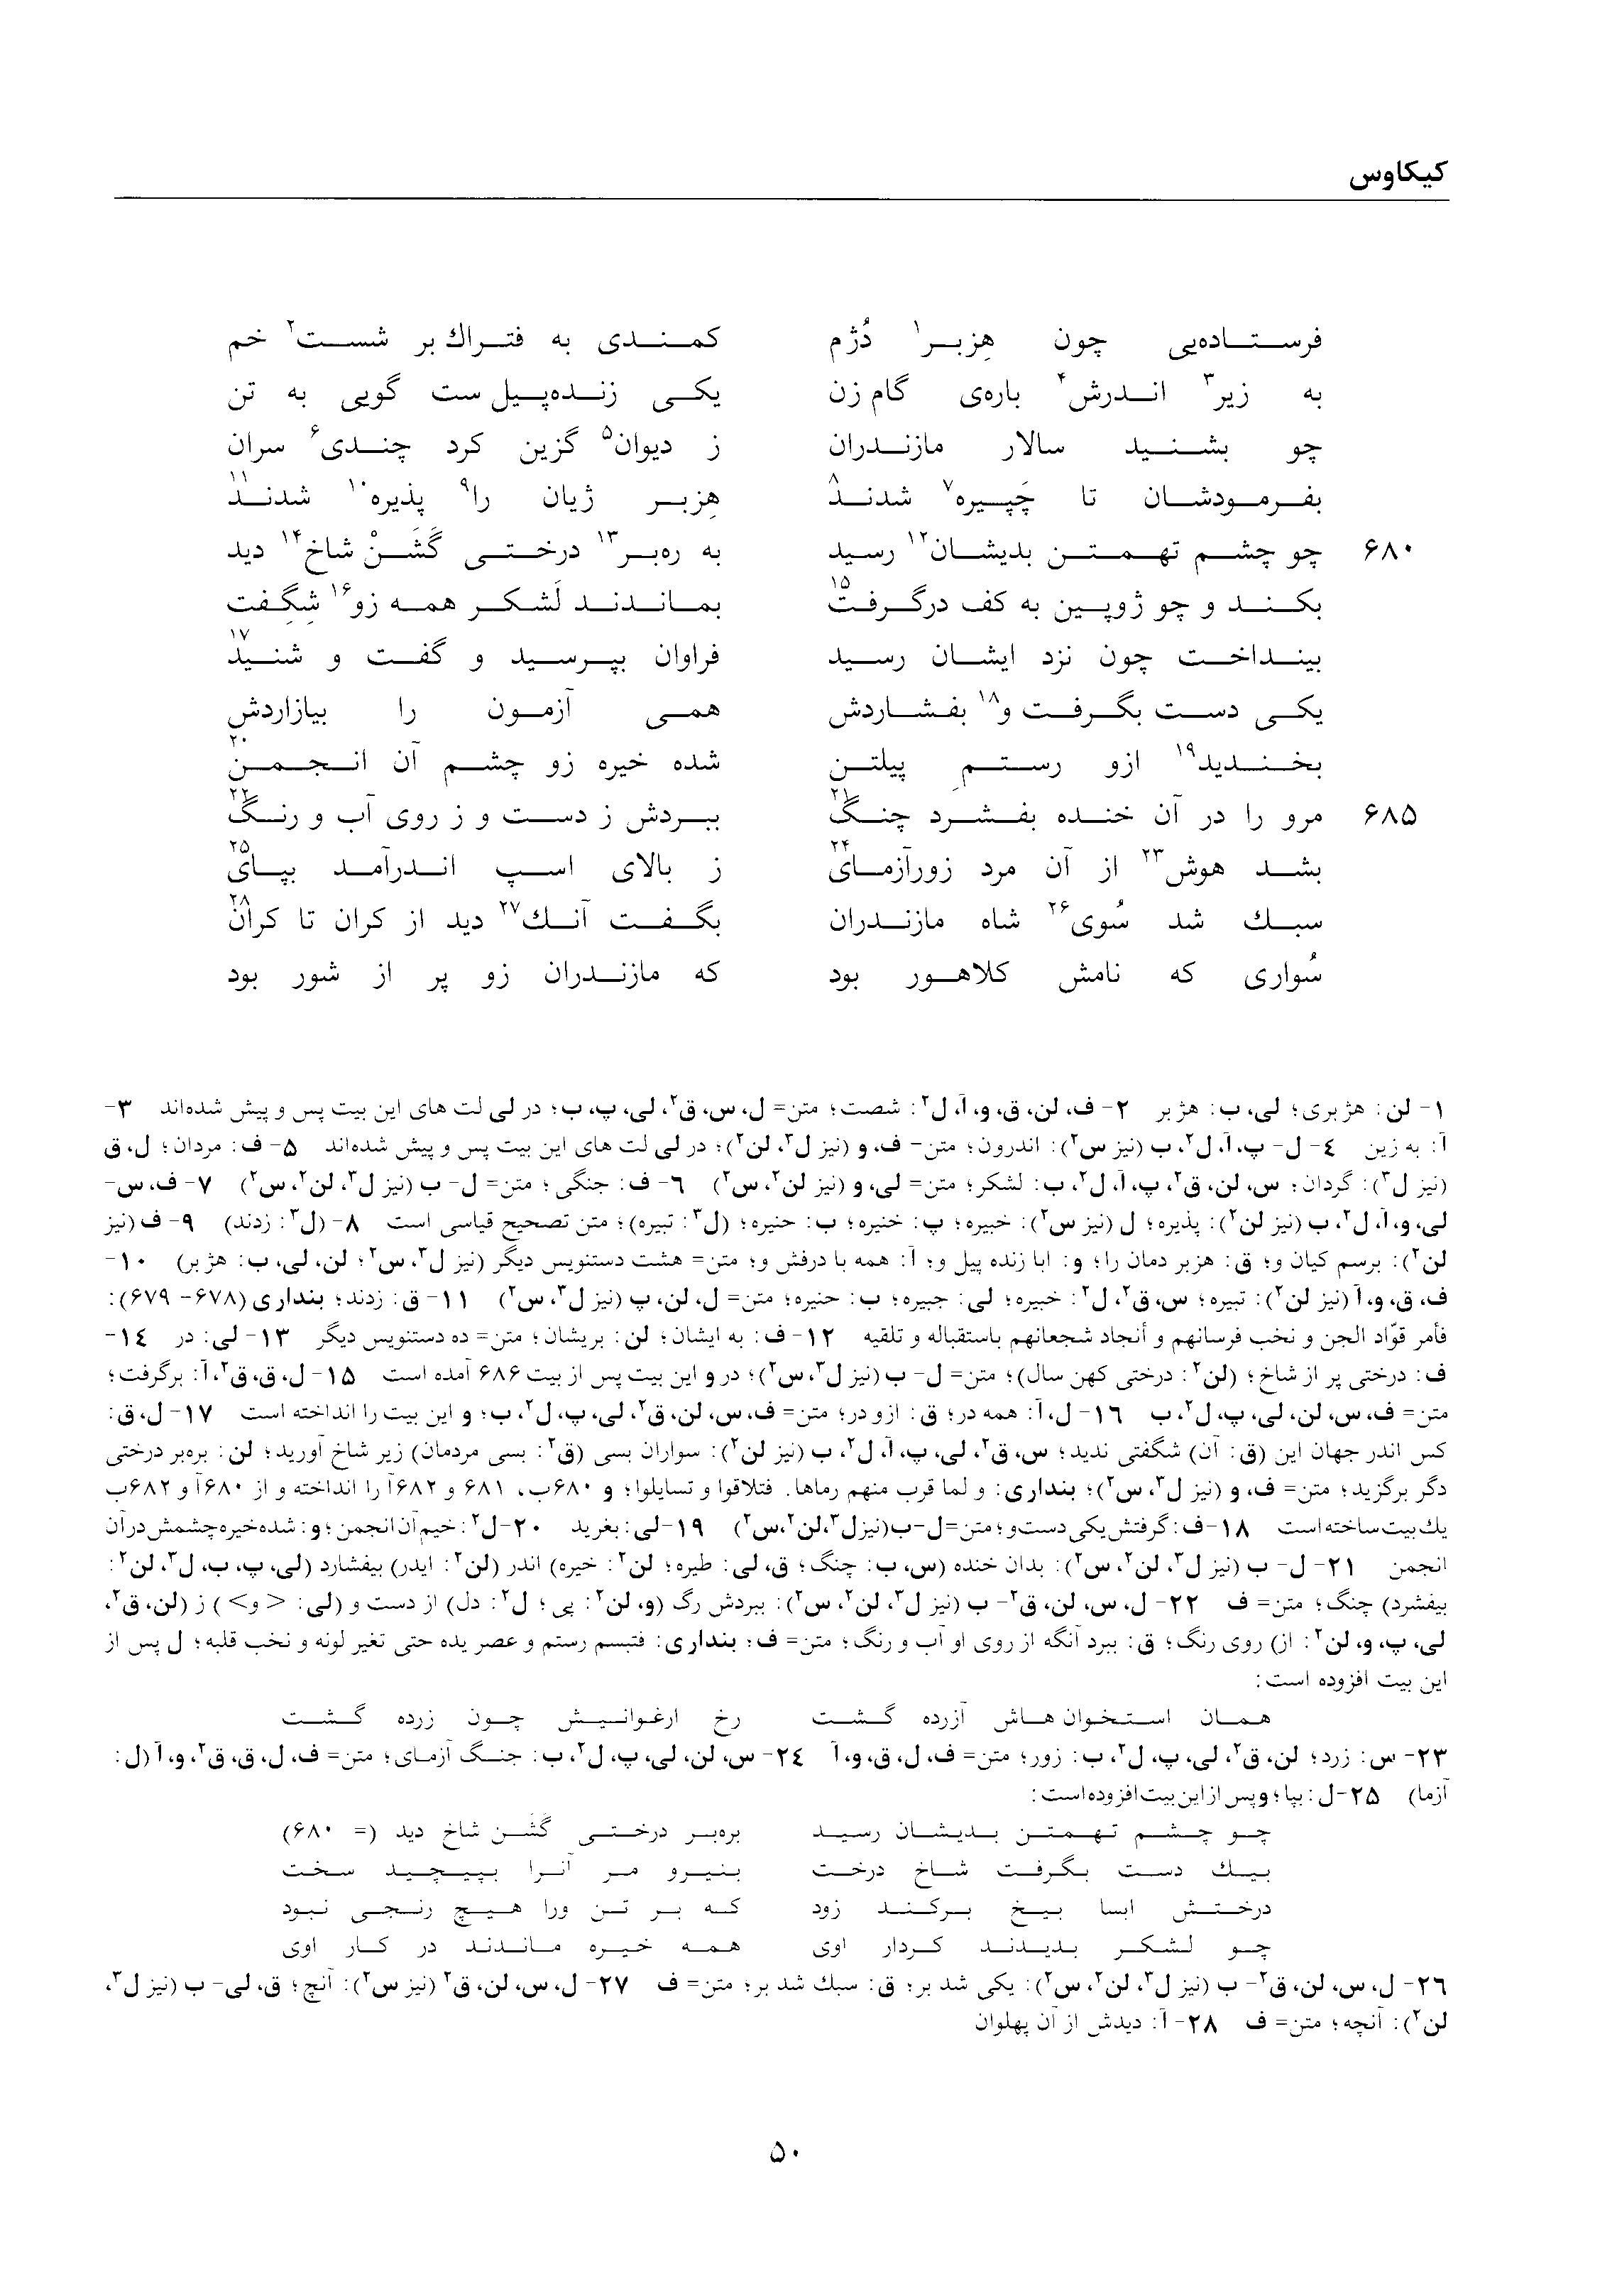 کیکاوس
فرستاده‌یی چون هِزبر۱ دُژم کمندی به فتراك بر شست۲ خم
به زیر۳ اندرش۴ باره‌ی گام زن یکی زنده‌پیل ست گویی به تن
چو بشنید سالار مازندران ز دیوان۵ گزین کرد چندی۶ سران
بفرمودشان تا چَپیره۷ شدند۸ هِزبر ژیان را۹ پذیره۱۰ شدند۱۱
۶۸۰ چو چشم تهمتن بدیشان۱۲ رسید به ره‌بر۱۳ درختی گَشَنْ شاخ۱۴ دید
بکند و چو ژوپین به کف درگرفت۱۵ بماندند لَشکر همه زو۱۶ شِگِفت
بینداخت چون نزد ایشان رسید فراوان بپرسید و گفت و شنید۱۷
یکی دست بگرفت و۱۸ بفشاردش همی آزمون را بیازاردش
بخندید۱۹ ازو رستمِ پیلتن شده خیره زو چشم آن انجمن۲۰
۶۸۵ مرو را در آن خنده بفشرد چنگ۲۱ ببردش ز دست و ز روی آب و رنگ۲۲
بشد هوش۲۳ از آن مرد زورآزمای۲۴ ز بالای اسپ اندرآمد بپای۲۵
سبك شد سُوی۲۶ شاه مازندران بگفت آنك۲۷ دید از کران تا کران۲۸
سُواری که نامش کلاهور بود که مازندران زو پر از شور بود
۱- لن: هژبری؛ لی، ب: هژبر ۲- ف، لن، ق، و، آ، ل۲: شصت؛ متن= ل، س، ق۲، لی، پ، ب؛ در لی لت های این بیت پس و پیش شده‌اند ۳-
آ: به زین ٤- ل- پ، آ، ل۲، ب (نیز س۲): اندرون؛ متن- ف، و (نیز ل۳، لن۲)؛ در لی لت های این بیت پس و پیش شده‌اند ۵- ف: مردان؛ ل، ق
(نیز ل۳): گردان؛ س، لن، ق۲، پ، آ، ل۲، ب: لشکر؛ متن= لی، و (نیز لن۲، س۲) ۶- ف: جنگی؛ متن= ل- ب (نیز ل۳، لن۲، س۲) ۷- ف، س-
لی، و، آ، ل۲، ب (نیز لن۲): پذیره؛ ل (نیز س۲): خبیره؛ پ: خنیره؛ ب: حنیره؛ (ل۳: تبیره)؛ متن تصحیح قیاسی است ۸- (ل۳: زدند) ۹- ف (نیز
لن۲): برسم کیان و؛ ق: هزبر دمان را؛ و: ابا زنده پیل و؛ آ: همه با درفش و؛ متن= هشت دستنویس دیگر (نیز ل۳، س۲؛ لن، لی، ب: هژبر) ۱۰-
ف، ق، و، آ (نیز لن۲): تبیره؛ س، ق۲، ل۲: خبیره؛ لی: جبیره؛ ب: حنیره؛ متن= ل، لن، پ (نیز ل۳، س۲) ۱۱- ق: زدند؛ بنداری (۶۷۸- ۶۷۹):
فأمر قوّاد الجن و نخب فرسانهم و أنجاد شجعانهم باستقباله و تلقیه ۱۲- ف: به ایشان؛ لن: بریشان؛ متن= ده دستنویس دیگر ۱۳- لی: در ۱٤-
ف: درختی پر از شاخ؛ (لن۲: درختی کهن سال)؛ متن= ل- ب (نیز ل۳، س۲)؛ در و این بیت پس از بیت ۶۸۶ آمده است ۱۵- ل، ق، ق۲، آ: برگرفت؛
متن= ف، س، لن، لی، پ، ل۲، ب ۱۶- ل، آ: همه در؛ ق: ازو در؛ متن= ف، س، لن، ق۲، لی، پ، ل۲، ب؛ و این بیت را انداخته است ۱۷- ل، ق:
کس اندر جهان این (ق: آن) شگفتی ندید؛ س، ق۲، لی، پ، آ، ل۲، ب (نیز لن۲): سواران بسی (ق۲: بسی مردمان) زیر شاخ آورید؛ لن: بره‌بر درختی
دگر برگزید؛ متن= ف، و (نیز ل۳، س۲)؛ بنداری: و لما قرب منهم رماها. فتلاقوا و تسایلوا؛ و ۶۸۰ب، ۶۸۱ و ۶۸۲آ را انداخته و از ۶۸۰آ و ۶۸۲ب
یك بیت ساخته است ۱۸- ف: گرفتش یکی دست و؛ متن= ل-ب (نیز ل۳، لن۲، س۲) ۱۹- لی: بغرید ۲۰- ل۲: خیم آن انجمن؛ و: شده خیره چشمش در آن
انجمن ۲۱- ل- ب (نیز ل۳، لن۲، س۲): بدان خنده (س، ب: چنگ؛ ق، لی: طیره؛ لن۲: خیره) اندر (لن۲: ایدر) بیفشارد (لی، پ، ب، ل۳، لن۲:
بیفشرد) چنگ؛ متن= ف ۲۲- ل، س، لن، ق۲- ب (نیز ل۳، لن۲، س۲): ببردش رگ (و، لن۲: پی؛ ل۲: دل) از دست و (لی: <و>) ز (لن، ق۲،
لی، پ، و، لن۲: از) روی رنگ؛ ق: ببرد آنگه از روی او آب و رنگ؛ متن= ف؛ بنداری: فتبسم رستم و عصر یده حتی تغیر لونه و نخب قلبه؛ ل پس از
این بیت افزوده است:
همان استخوان هاش آزرده گشت رخ ارغوانیش چون زرده گشت
۲۳- س: زرد؛ لن، ق۲، لی، پ، ل۲، ب: زور؛ متن= ف، ل، ق، و، آ ۲٤- س، لن، لی، پ، ل۲، ب: جنگ آزمای؛ متن= ف، ل، ق، ق۲، و، آ (ل:
آزما) ۲۵- ل: بپا؛ و پس از این بیت افزوده است:
چو چشم تهمتن بدیشان رسید بره‌بر درختی گَشَن شاخ دید (= ۶۸۰)
بیك دست بگرفت شاخ درخت بنیرو مر آنرا بپیچید سخت
درختش ابسا بیخ برکند زود که بر تن ورا هیچ رنجی نبود
چو لشکر بدیدند کردار اوی همه خیره ماندند در کار اوی
۲۶- ل، س، لن، ق۲- ب (نیز ل۳، لن۲، س۲): یکی شد بر؛ ق: سبك شد بر؛ متن= ف ۲۷- ل، س، لن، ق۲ (نیز س۲): آنچ؛ ق، لی- ب (نیز ل۳،
لن۲): آنچه؛ متن= ف ۲۸- آ: دیدش از آن پهلوان
۵۰